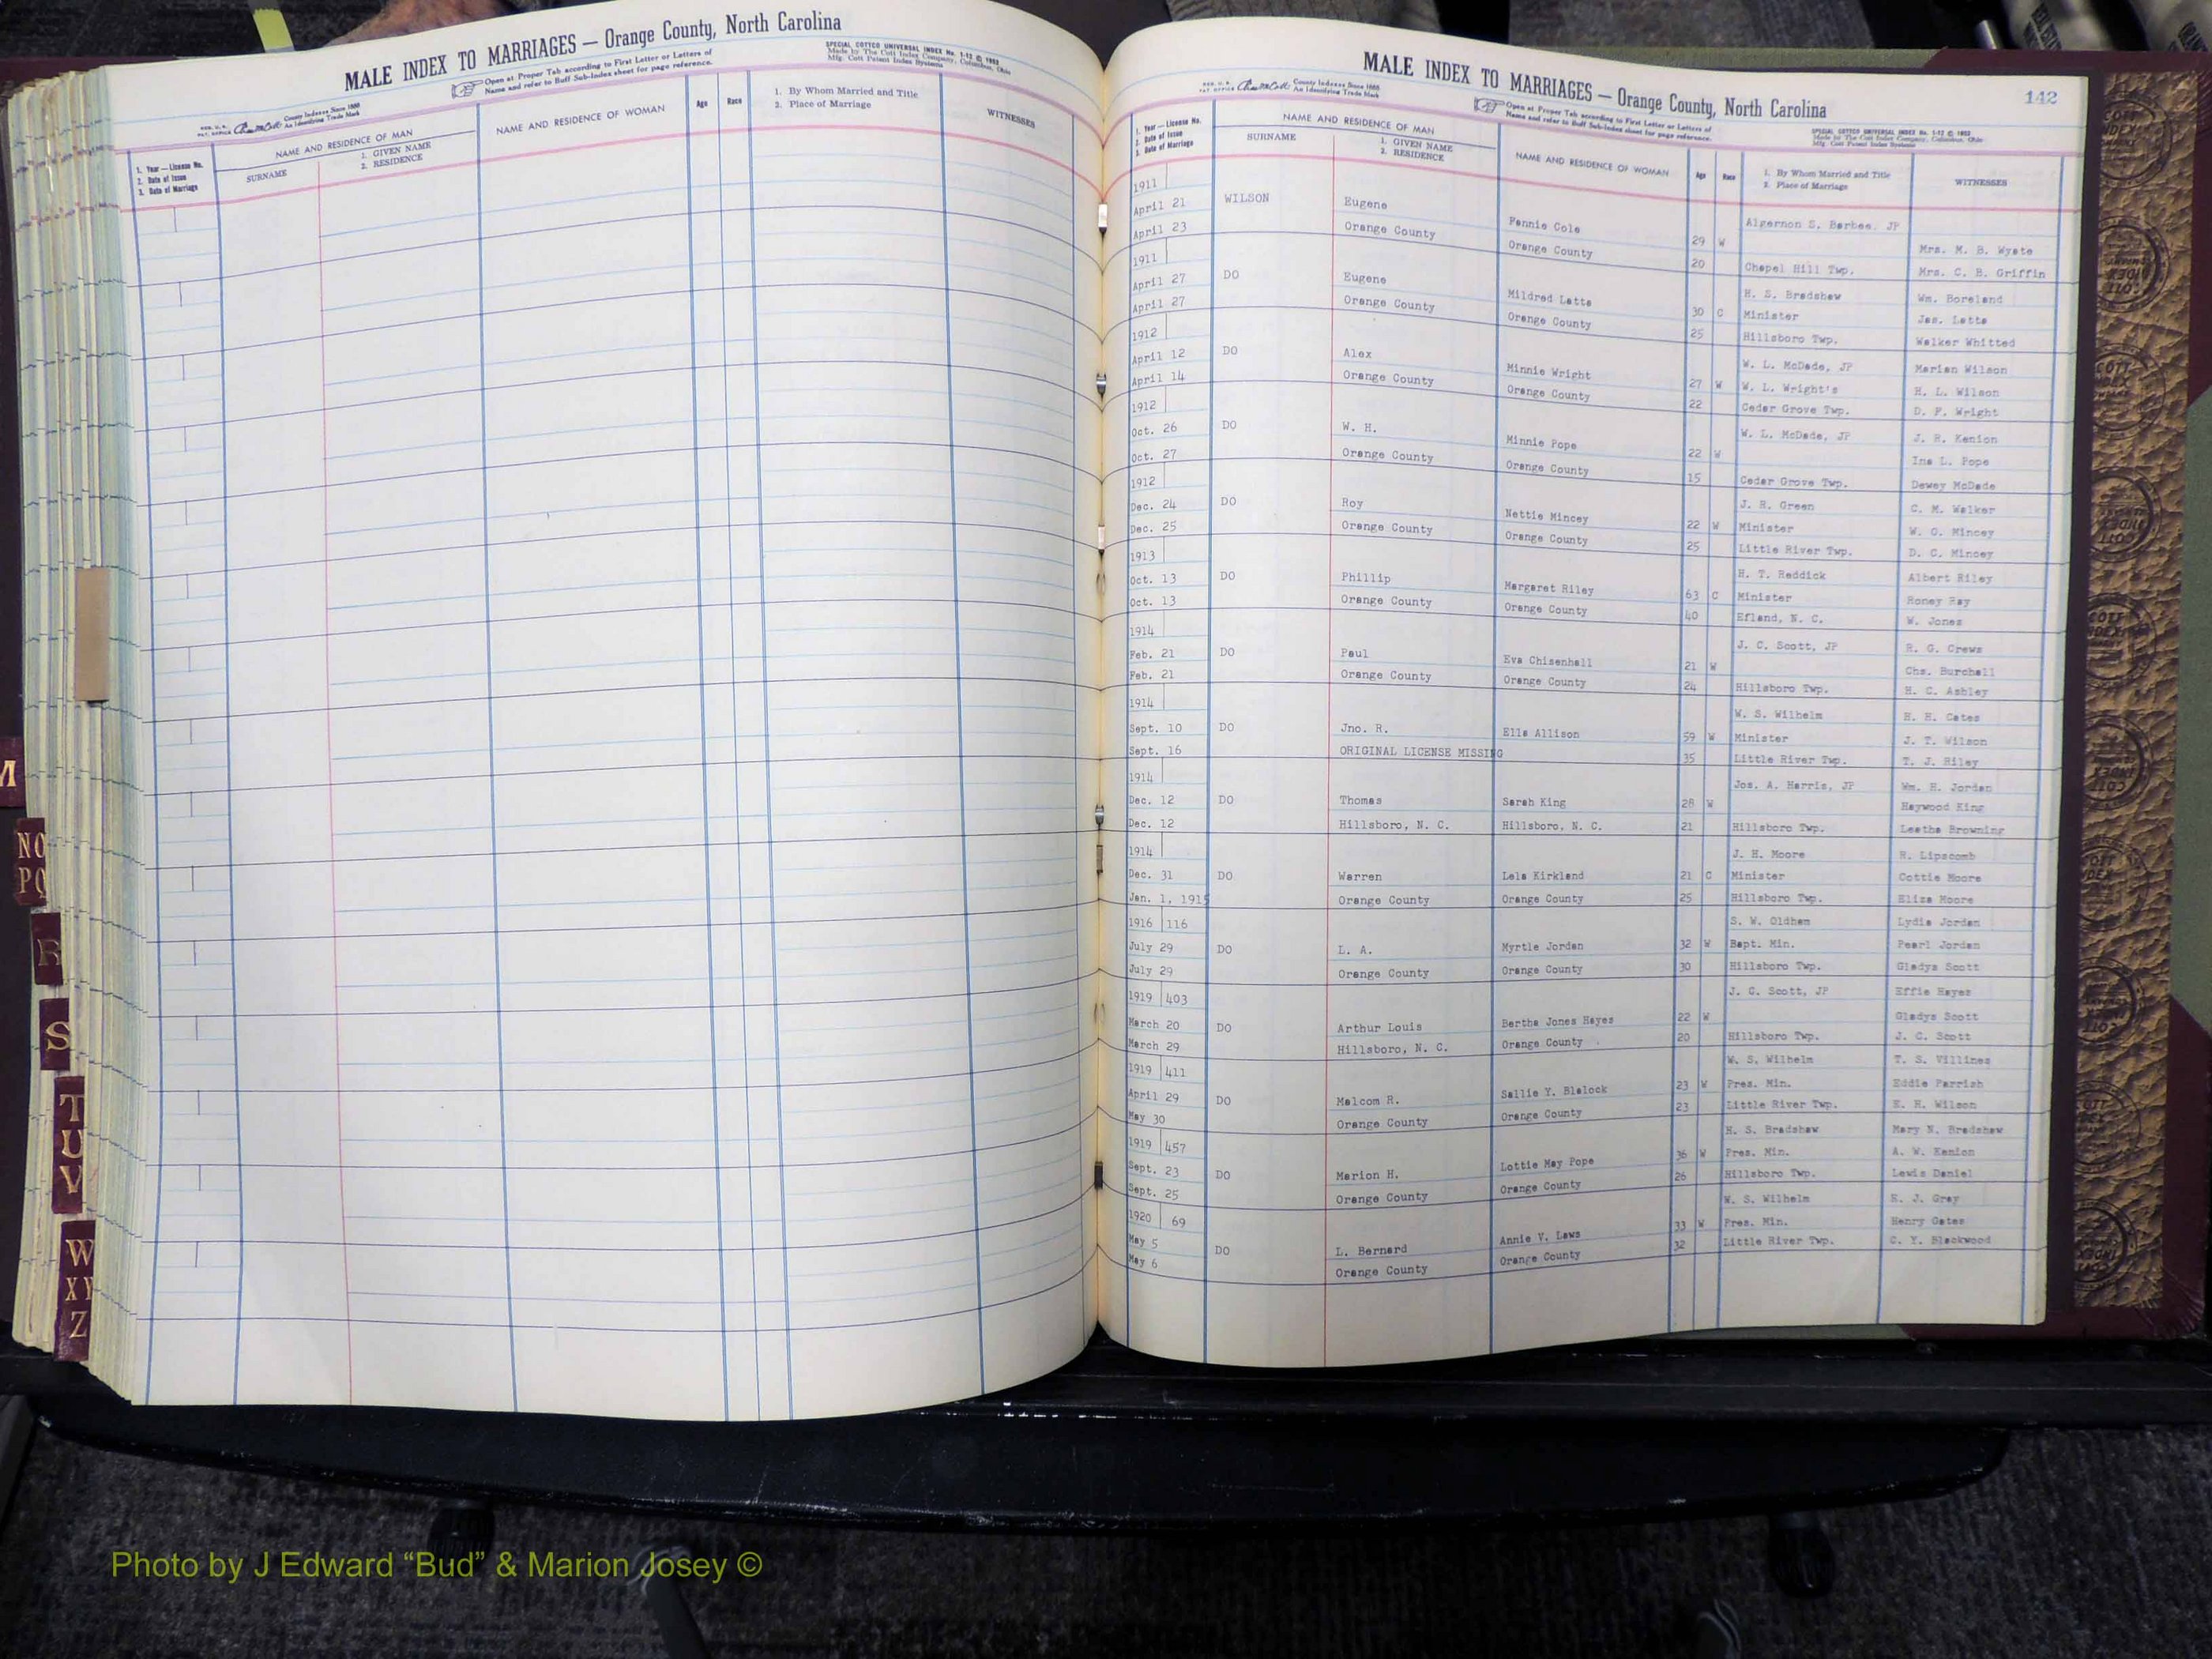 MALE INDEX TO MARRIAGES — Orange County, North Carolina
Open at Proper Tab according to First Letter or Letters of
Name and refer to Buff Sub-Index sheet for page reference.
SPECIAL COTTCO UNIVERSAL INDEX No. 1-12 © 1952
Made by The Cott Index Company, Columbus, Ohio
Mfg. Cott Patent Index Systems
County Indexes Since 1888
An Identifying Trade Mark
1. Year — License No.
2. Date of Issue
3. Date of Marriage
NAME AND RESIDENCE OF MAN
SURNAME
1. GIVEN NAME
2. RESIDENCE
NAME AND RESIDENCE OF WOMAN
Age
Race
1. By Whom Married and Title
2. Place of Marriage
WITNESSES
MALE INDEX TO MARRIAGES — Orange County, North Carolina
142
County Indexes Since 1888
An Identifying Trade Mark
Open at Proper Tab according to First Letter or Letters of
Name and refer to Buff Sub-Index sheet for page reference.
SPECIAL COTTCO UNIVERSAL INDEX No. 1-12 © 1952
Made by The Cott Index Company, Columbus, Ohio
Mfg. Cott Patent Index Systems
1. Year — License No.
2. Date of Issue
3. Date of Marriage
NAME AND RESIDENCE OF MAN
SURNAME
1. GIVEN NAME
2. RESIDENCE
NAME AND RESIDENCE OF WOMAN
Age
Race
1. By Whom Married and Title
2. Place of Marriage
WITNESSES
1911 Algernon S. Barbee, JP
April 21 WILSON Eugene Fannie Cole 29 W Mrs. M. B. Wyate
April 23 Orange County Orange County 20 Chapel Hill Twp. Mrs. C. B. Griffin
1911 H. S. Bradshaw Wm. Boreland
April 27 DO Eugene Mildred Latta 30 C Minister Jas. Latta
April 27 Orange County Orange County 25 Hillsboro Twp. Walker Whitted
1912 W. L. McDade, JP Marian Wilson
April 12 DO Alex Minnie Wright 27 W W. L. Wright's H. L. Wilson
April 14 Orange County Orange County 22 Cedar Grove Twp. D. F. Wright
1912 W. L. McDade, JP J. R. Kenion
Oct. 26 DO W. H. Minnie Pope 22 W Ina L. Pope
Oct. 27 Orange County Orange County 15 Cedar Grove Twp. Dewey McDade
1912 J. R. Green C. M. Walker
Dec. 24 DO Roy Nettie Mincey 22 W Minister W. G. Mincey
Dec. 25 Orange County Orange County 25 Little River Twp. D. C. Mincey
1913 H. T. Reddick Albert Riley
Oct. 13 DO Phillip Margaret Riley 63 C Minister Roney Ray
Oct. 13 Orange County Orange County 40 Efland, N. C. W. Jones
1914 J. C. Scott, JP R. G. Crews
Feb. 21 DO Paul Eva Chisenhall 21 W Chs. Burchell
Feb. 21 Orange County Orange County 24 Hillsboro Twp. H. C. Ashley
1914 W. S. Wilhelm H. H. Cates
Sept. 10 DO Jno. R. Ella Allison 59 W Minister J. T. Wilson
Sept. 16 ORIGINAL LICENSE MISSING 35 Little River Twp. T. J. Riley
1914 Jos. A. Harris, JP Wm. H. Jordan
Dec. 12 DO Thomas Sarah King 28 W Haywood King
Dec. 12 Hillsboro, N. C. Hillsboro, N. C. 21 Hillsboro Twp. Leatha Browning
1914 J. H. Moore R. Lipscomb
Dec. 31 DO Warren Lela Kirkland 21 C Minister Cottie Moore
Jan. 1, 1915 Orange County Orange County 25 Hillsboro Twp. Eliza Moore
1916 116 S. W. Oldham Lydia Jordan
July 29 DO L. A. Myrtle Jordan 32 W Bapt. Min. Pearl Jordan
July 29 Orange County Orange County 30 Hillsboro Twp. Gladys Scott
1919 403 J. C. Scott, JP Effie Hayes
March 20 DO Arthur Louis Bertha Jones Hayes 22 W Gladys Scott
March 29 Hillsboro, N. C. Orange County 20 Hillsboro Twp. J. C. Scott
1919 411 W. S. Wilhelm T. S. Villines
April 29 DO Malcom R. Sallie Y. Blalock 23 W Pres. Min. Eddie Parrish
May 30 Orange County Orange County 23 Little River Twp. E. H. Wilson
1919 457 H. S. Bradshaw Mary N. Bradshaw
Sept. 23 DO Marion H. Lottie May Pope 36 W Pres. Min. A. W. Kenion
Sept. 25 Orange County Orange County 26 Hillsboro Twp. Lewis Daniel
1920 69 W. S. Wilhelm E. J. Gray
May 5 DO L. Bernard Annie V. Laws 33 W Pres. Min. Henry Gates
May 6 Orange County Orange County 32 Little River Twp. C. Y. Blackwood
M
NO
PQ
R
S
T
U
V
W
XY
Z
Photo by J Edward “Bud” & Marion Josey ©